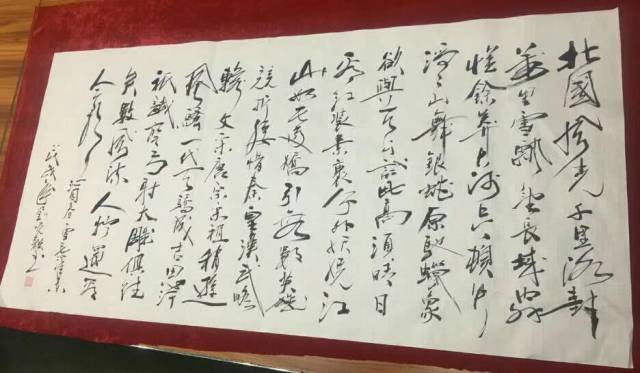 北國風光千里冰封
萬里雪飄望長城內外
惟餘莽莽大河上下頓失
滔滔山舞銀蛇原馳蠟象
欲與天公試比高須晴日
看紅裝素裹分外妖嬈江
山如此多嬌引無數英雄
競折腰惜秦皇漢武略
輸文采唐宗宋祖稍遜
風騷一代天驕成吉思汗
祇識彎弓射大雕俱往
矣數風流人物還看
今朝
沁園春雪毛澤東